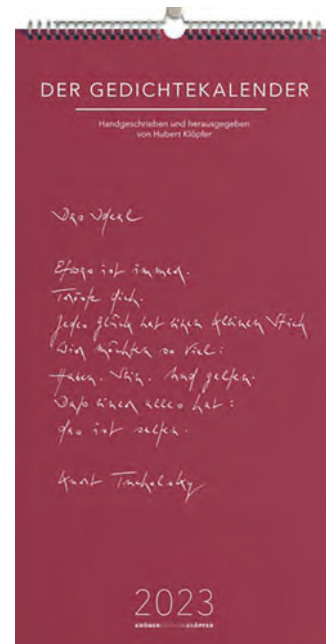 DER GEDICHTEKALENDER
Handgeschrieben und herausgegeben
von Hubert Klöpfer
Das Ideal
Etwas ist immer.
Tröste dich.
Jedes Glück hat einen kleinen Stich
Wir möchten so viel:
Haben. Sein. Und gelten.
Daß einer alles hat:
das ist selten.
Kurt Tucholsky
2023
KRÖNER EDITION KLÖPFER